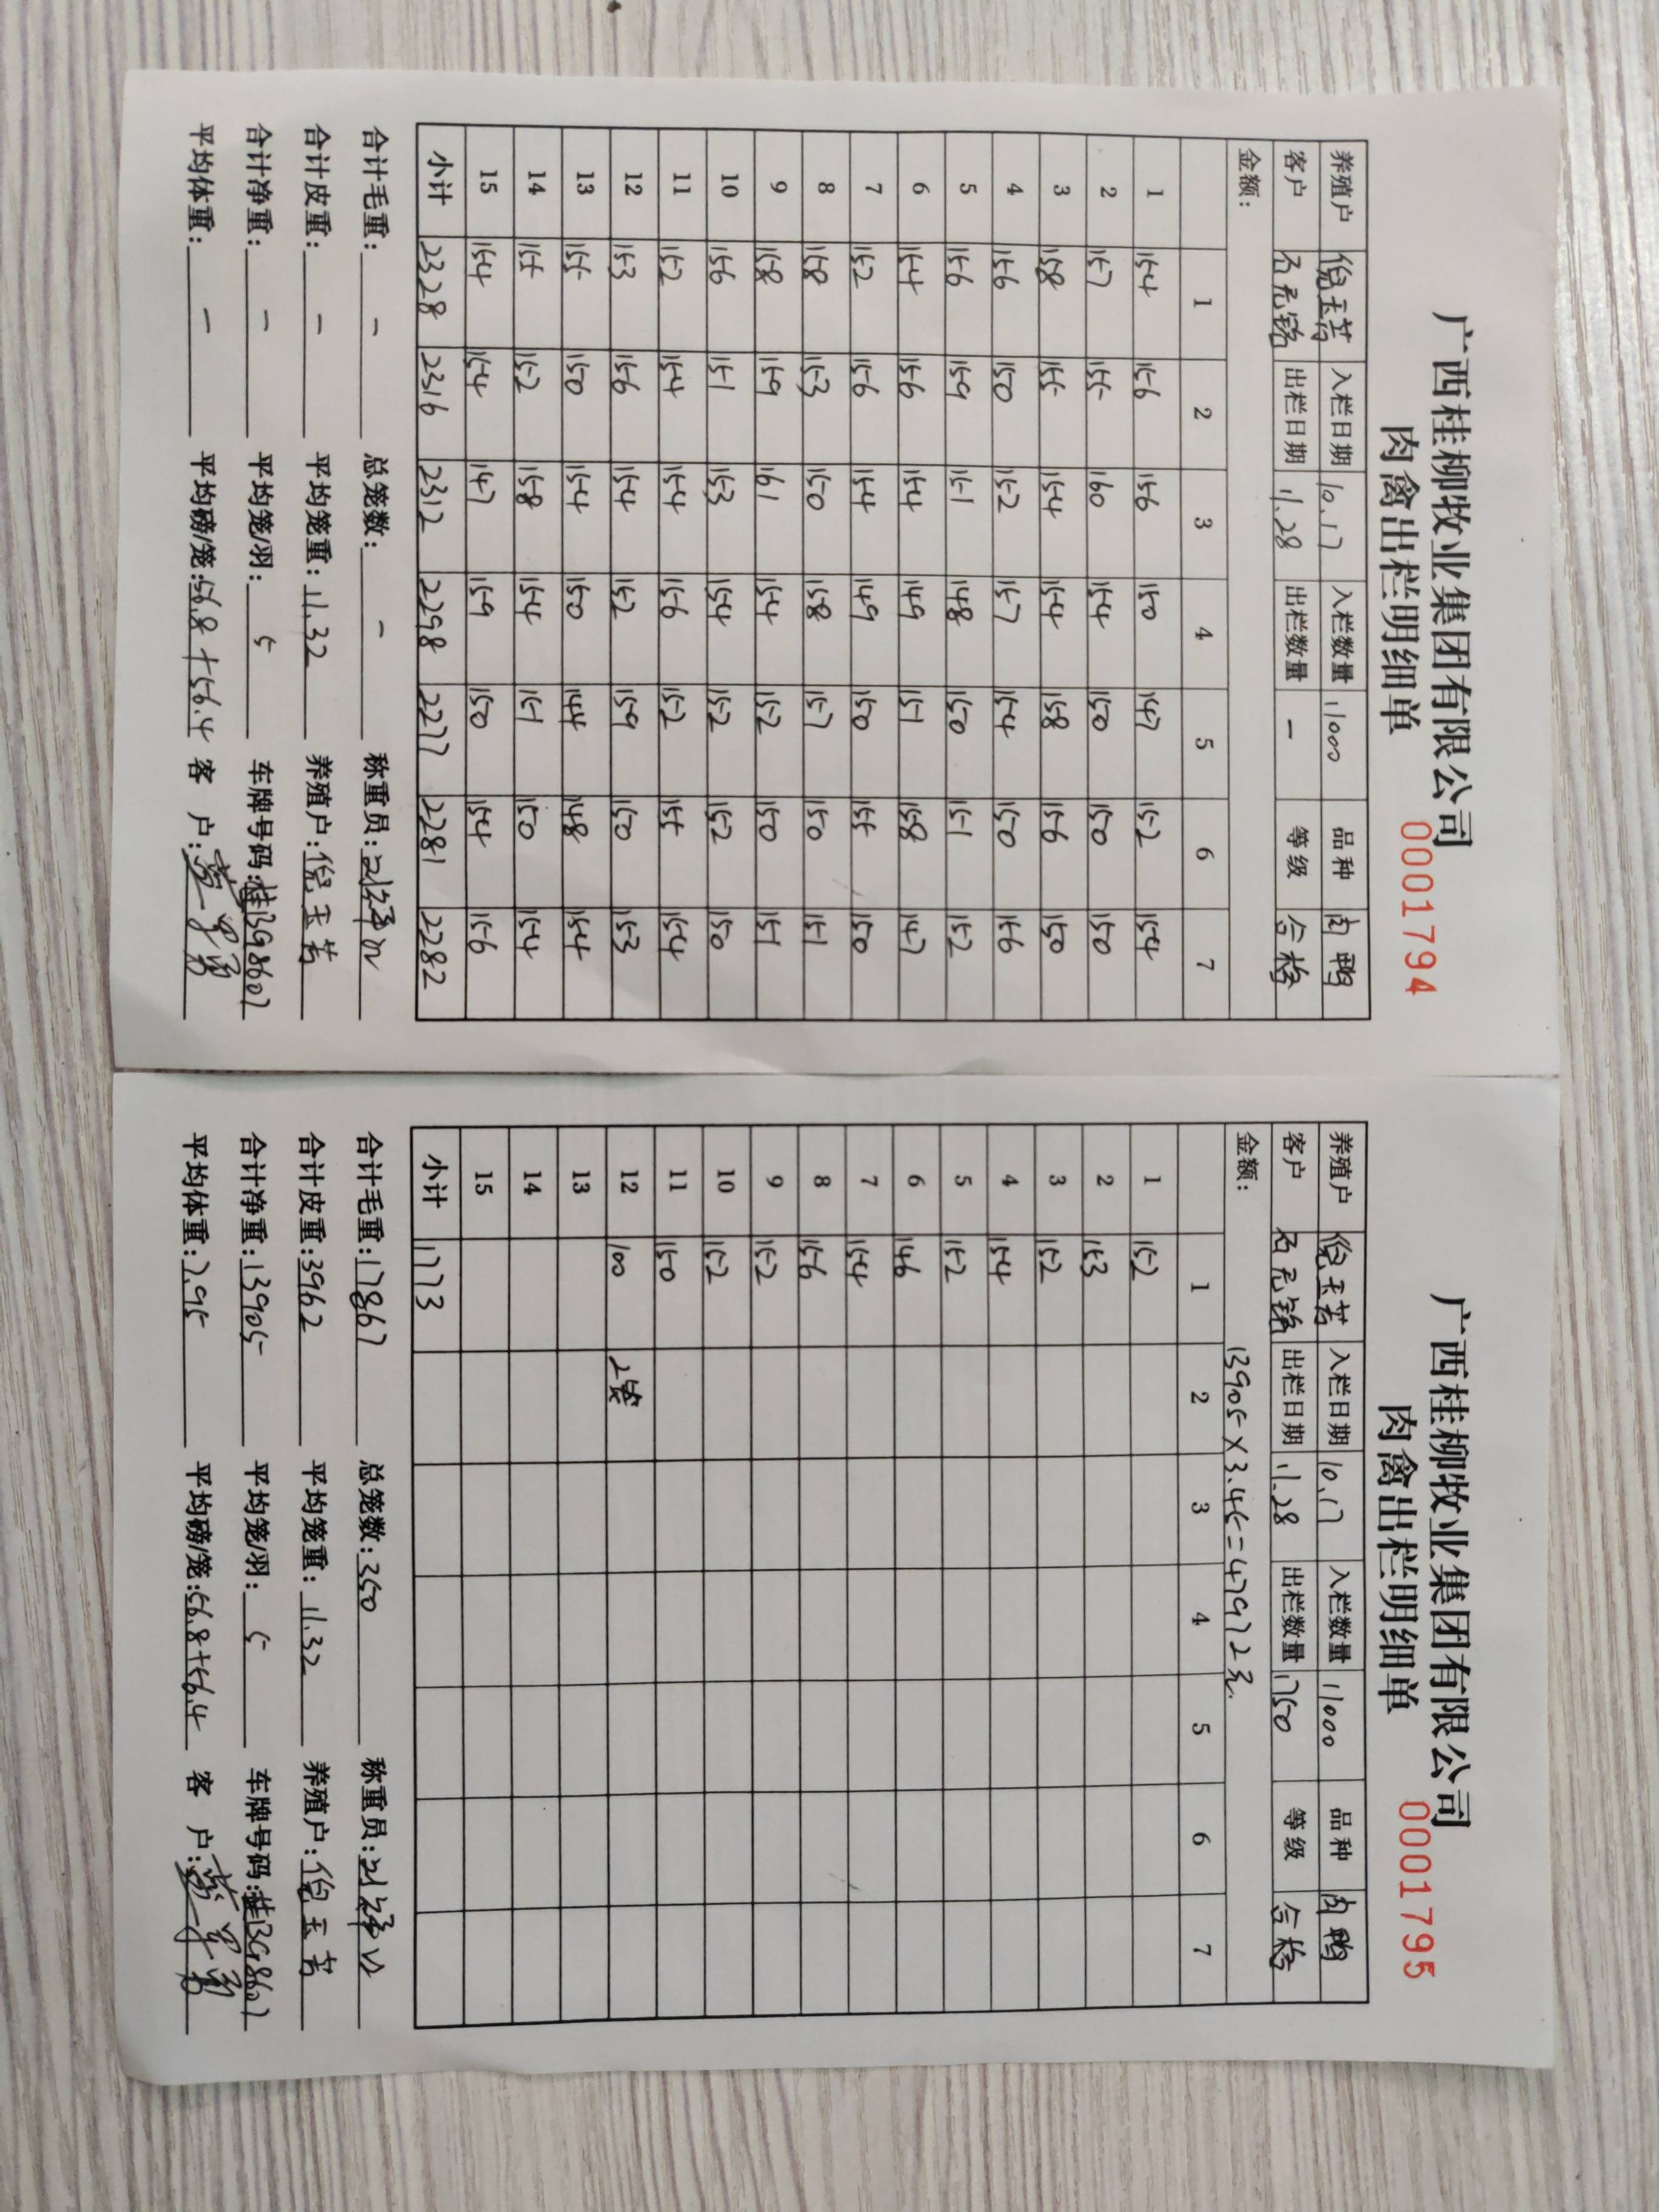 广西桂柳牧业集团有限公司
肉禽出栏明细单 0001794
养殖户 倪玉芳 入栏日期 10.17 入栏数量 11000 品种 肉鸭
客户 石元锦 出栏日期 11.28 出栏数量 - 等级 合格
金额:
1 2 3 4 5 6 7
1 154 156 156 150 147 152 154
2 157 155 160 154 150 150 150
3 158 155 154 154 158 156 150
4 156 150 152 157 154 150 156
5 156 159 151 148 150 151 152
6 154 156 154 149 151 158 147
7 152 156 154 149 150 155 150
8 158 153 150 158 157 150 151
9 158 159 161 154 152 150 151
10 156 151 153 154 152 152 150
11 152 154 154 156 152 155 154
12 153 156 154 152 159 150 153
13 155 150 154 150 144 148 154
14 155 152 158 154 151 150 154
15 154 154 147 159 150 154 156
小计 2328 2316 2312 2298 2277 2281 2282
合计毛重: - 总笼数: - 称重员:
合计皮重: - 平均笼重: 11.32 养殖户: 倪玉芳
合计净重: - 平均笼/羽: 5 车牌号码: 桂B98607
平均体重: - 平均磅/笼: 56.8+56.4 客 户:
广西桂柳牧业集团有限公司
肉禽出栏明细单 0001795
养殖户 倪玉芳 入栏日期 10.17 入栏数量 11000 品种 肉鸭
客户 石元锦 出栏日期 11.28 出栏数量 1750 等级 合格
金额: 13905×3.45=47972元.
1 2 3 4 5 6 7
1 152
2 153
3 152
4 154
5 152
6 146
7 154
8 156
9 152
10 152
11 150
12 100 2笼
13
14
15
小计 1773
合计毛重: 17867 总笼数: 350 称重员:
合计皮重: 3962 平均笼重: 11.32 养殖户: 倪玉芳
合计净重: 13905 平均笼/羽: 5 车牌号码:
平均体重: 7.95 平均磅/笼: 56.8+56.4 客 户: